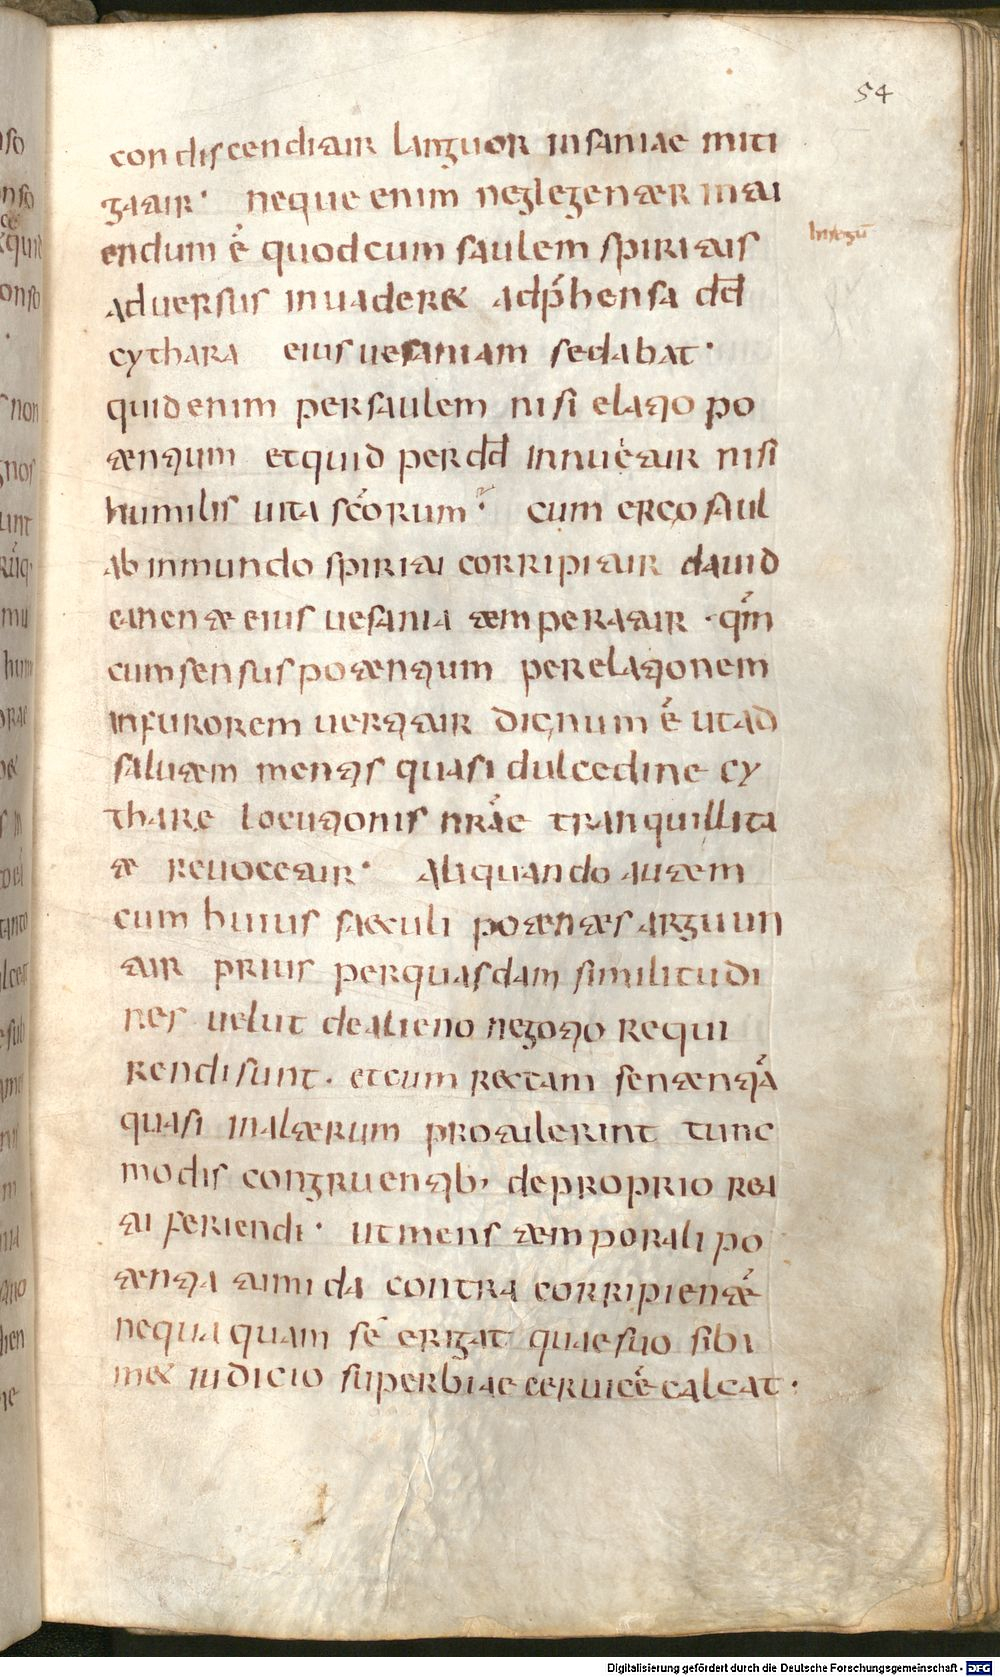 54
condiscenditur languor insaniae miti
gatur· neque enim neglegenter intu
endum ē quod cum saulem spiritus
adversus invaderet adp̄hensa dd̄
cythara eius vesaniam sedabat·
quid enim per saulem nisi elatio po
tentium et quid per dd̄ innuetur nisi
humilis vita sc̄orum· cum ergo saul
ab inmundo spiritu corripitur david
canente eius vesania temperatur · qm̄
cum sensus potentium per elationem
in furorem vertitur dignum ē ut ad
salutem mentis quasi dulcedine cy
thare locutionis nr̄ae tranquillita
te revocetur· Aliquando autem
cum huius saeculi potentes arguun
tur prius per quasdam similitudi
nes velut de alieno negotio requi
rendi sunt· et cum rectam sententiā
quasi in alterum protulerint tunc
modis congruentib; de proprio rea
tu feriendi· ut mens temporali po
tentia tumida contra corripientē
nequaquam sē erigat quae suo sibi
met iudicio superbiae cervicē calcat·
Digitalisierung gefördert durch die Deutsche Forschungsgemeinschaft - DFG